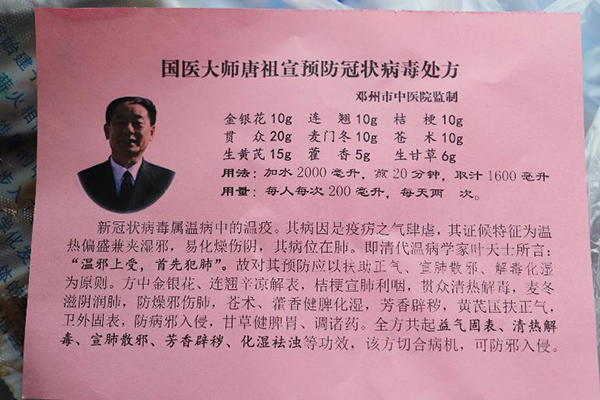 国医大师唐祖宣预防冠状病毒处方
邓州市中医院监制
金银花10g 连翘10g 桔梗10g
贯众20g 麦门冬10g 苍术10g
生黄芪15g 藿香5g 生甘草6g
用法：加水2000毫升，煎20分钟，取汁1600毫升
用量：每人每次200毫升，每天两次。
新冠状病毒属温病中的温疫。其病因是疫疠之气肆虐，其证候特征为温
热偏盛兼夹湿邪，易化燥伤阴，其病位在肺。即清代温病学家叶天士所言：
“温邪上受，首先犯肺”。故对其预防应以扶助正气、宣肺散邪、解毒化湿
为原则。方中金银花、连翘辛凉解表，桔梗宣肺利咽，贯众清热解毒，麦冬
滋阴润肺，防燥邪伤肺，苍术、藿香健脾化湿，芳香辟秽，黄芪匡扶正气，
卫外固表，防病邪入侵，甘草健脾胃、调诸药。全方共起益气固表、清热解
毒、宣肺散邪、芳香辟秽、化湿祛浊等功效，该方切合病机，可防邪入侵。